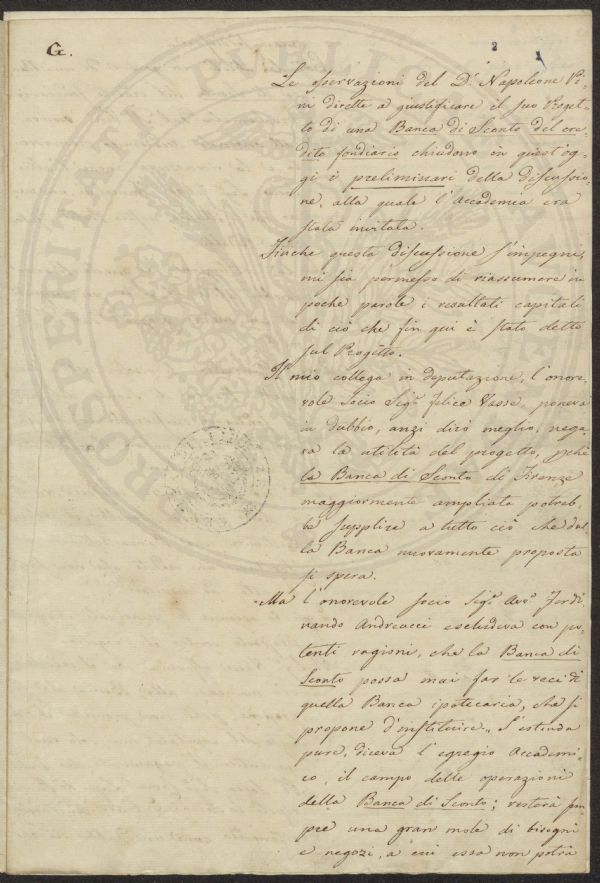 G.
2
1
Le osservazioni del D.r Napoleone Pi-
ni dirette a giustificare il suo Proget-
to di una Banca di Sconto del cre-
dito fondiario chiudono in quest'og-
gi i preliminari della discussio-
ne, alla quale l'Accademia era
stata invitata.
Finche questa discussione s'impegni,
mi sia permesso di riassumere in
poche parole i resultati capitali
di ciò che fin qui è stato detto
sul Progetto.
Il mio collega in deputazione, l'onore-
vole Socio Sig.r Felice Vasse, poneva
in dubbio, anzi dirò meglio, nega-
va la utilità del progetto, pchè
la Banca di Sconto di Firenze
maggiormente ampliata potreb-
be supplire a tutto ciò che dal-
la Banca nuovamente proposta
si spera.
Ma l'onorevole socio Sig.r Avv.o Ferdi-
nando Andreucci escludeva con po-
tenti ragioni, che la Banca di
Sconto possa mai far le veci di
quella Banca ipotecaria, che si
propone d'instituire. S'estenda
pure, diceva l'egregio Accademi-
co, il campo delle operazioni
della Banca di Sconto; resterà sem
pre una gran mole di bisogni
e negozi, a cui essa non potrà